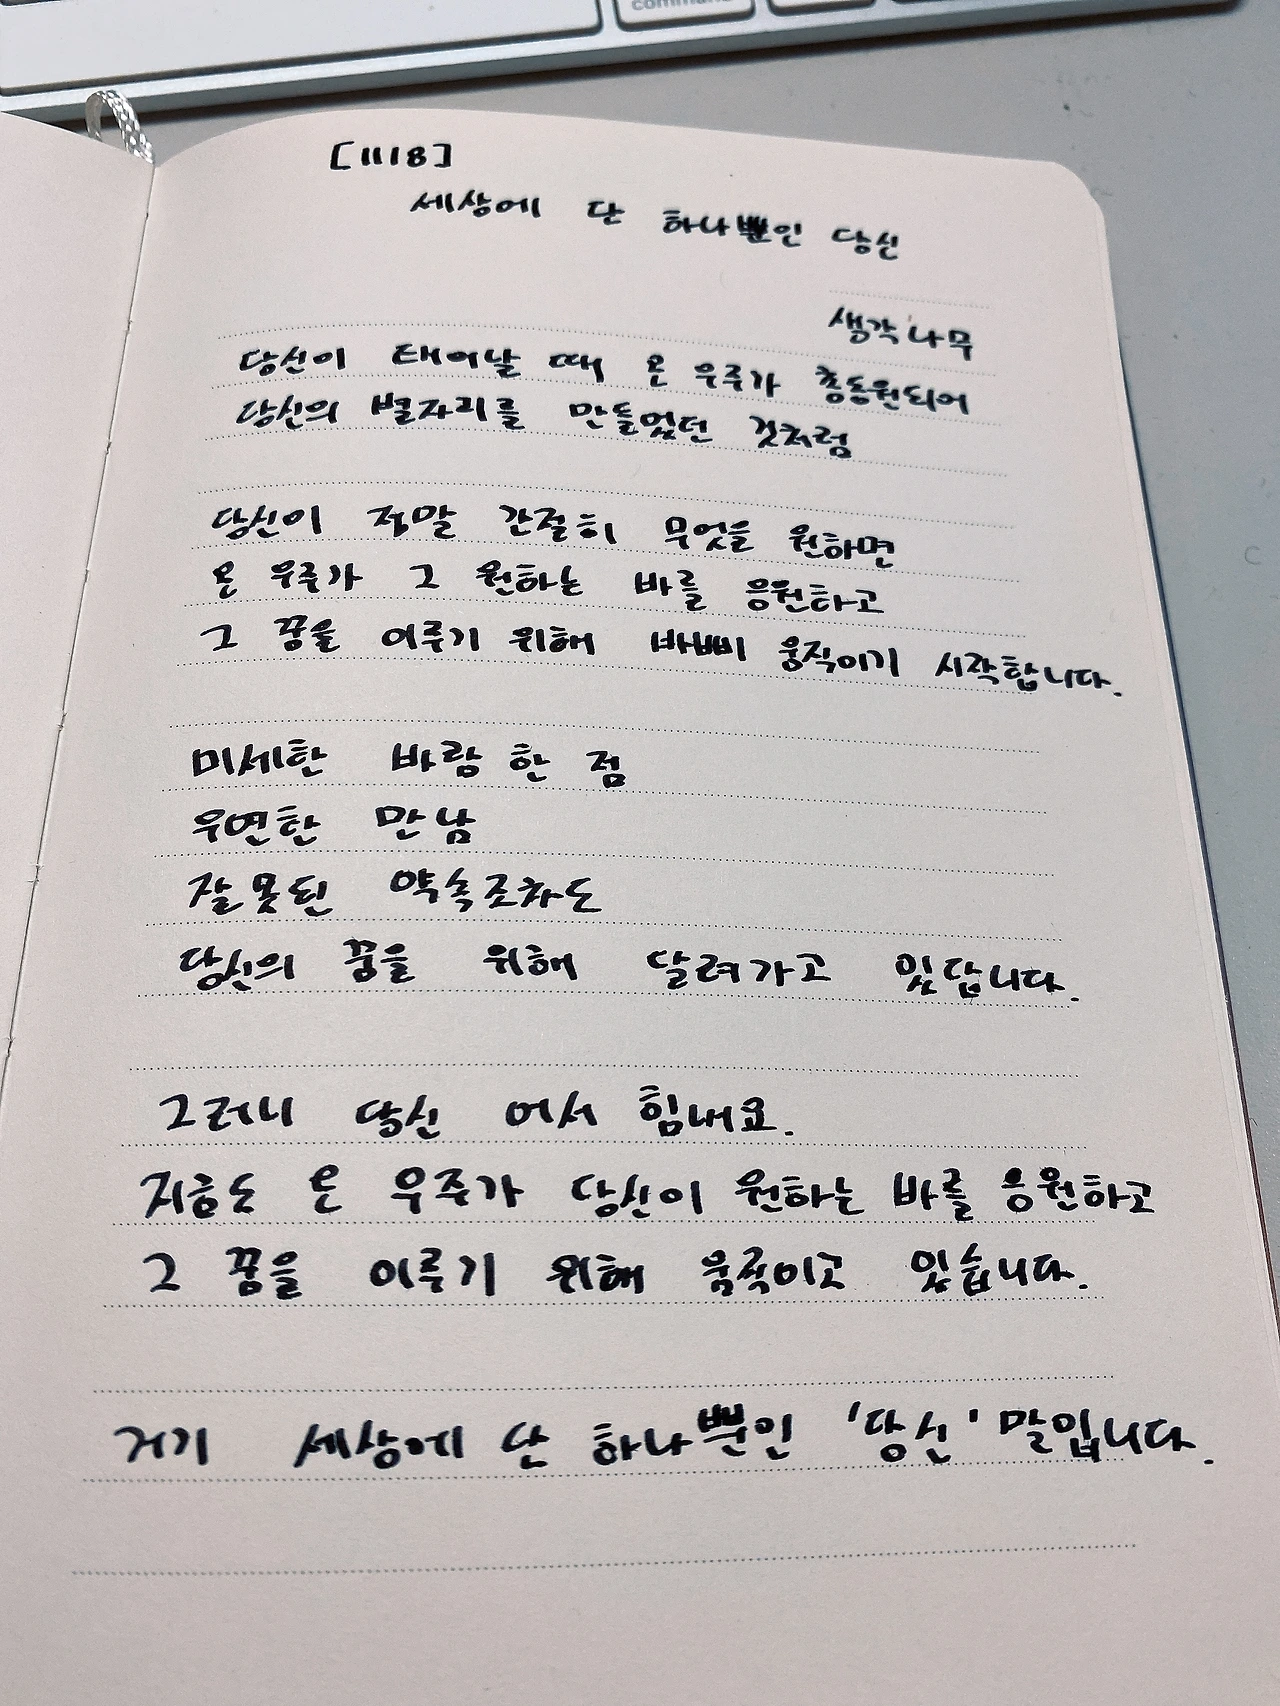 command
[1118]
세상에 단 하나뿐인 당신
생각나무
당신이 태어날 때 온 우주가 총동원되어
당신의 별자리를 만들었던 것처럼
당신이 정말 간절히 무엇을 원하면
온 우주가 그 원하는 바를 응원하고
그 꿈을 이루기 위해 바삐 움직이기 시작합니다.
미세한 바람 한 점
우연한 만남
잘못된 약속조차도
당신의 꿈을 위해 달려가고 있답니다.
그러니 당신 어서 힘내요.
지금도 온 우주가 당신이 원하는 바를 응원하고
그 꿈을 이루기 위해 움직이고 있습니다.
거기 세상에 단 하나뿐인 '당신' 말입니다.